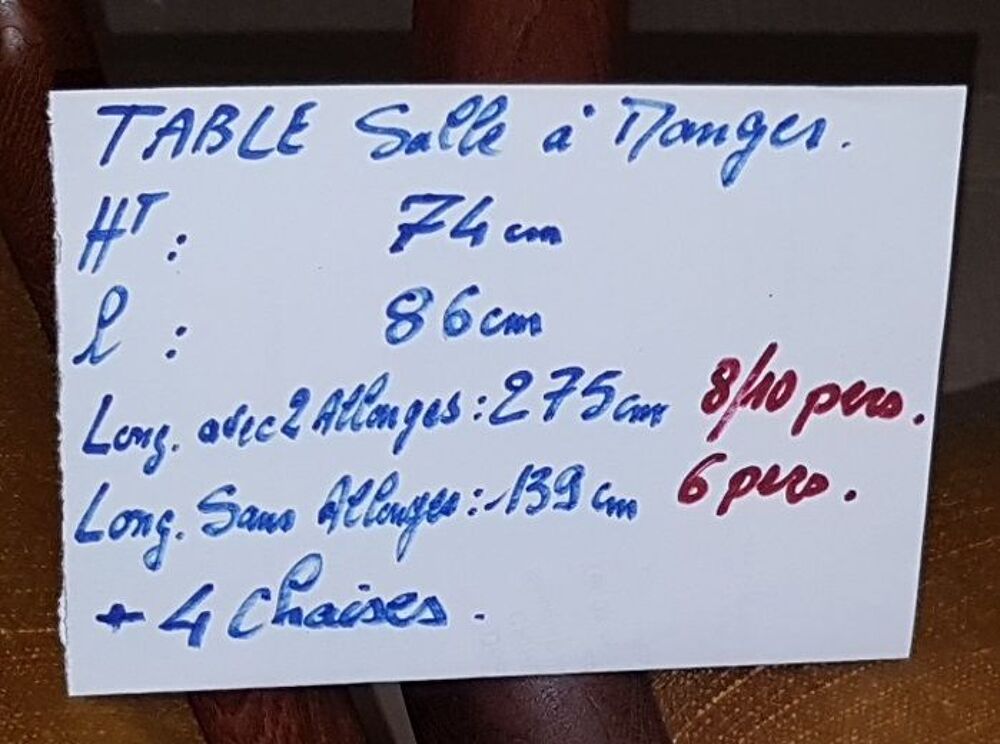 TABLE Salle à Manger.
HT : 74 cm
l : 86 cm
Long. avec 2 Allonges : 275 cm 8/10 pers.
Long. Sans Allonges : 139 cm 6 pers.
+ 4 Chaises.